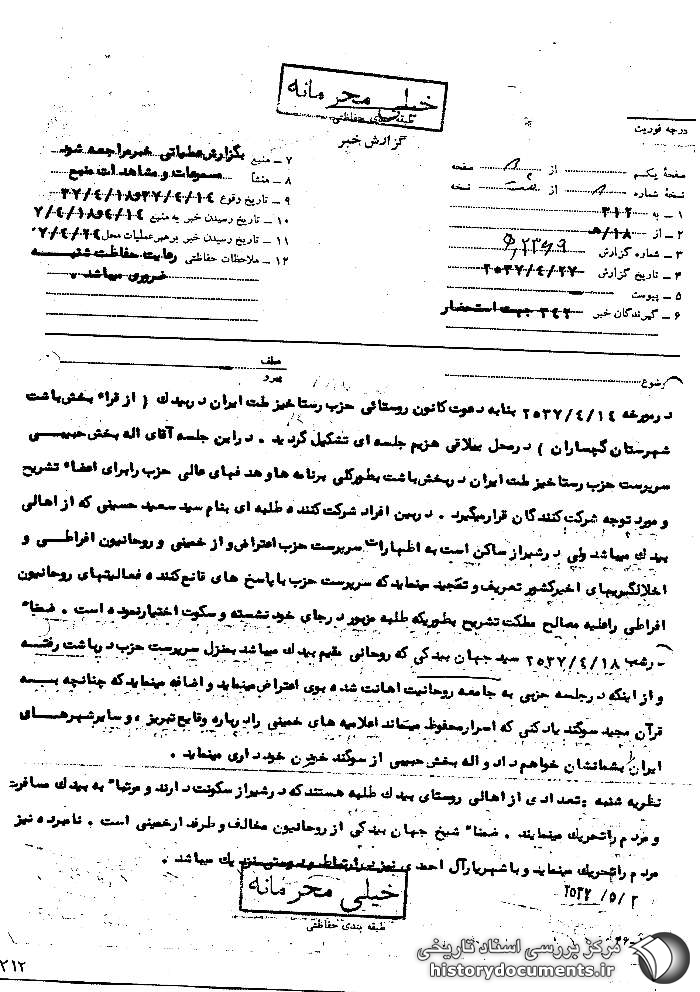 خیلی محرمانه
طبقه بندی حفاظتی
گزارش خبر
درجه فوریت
صفحهٔ یکم از صفحه
نسخهٔ شماره از نسخه
۱ ــ به ۳۱۲
۲ ــ از ۱۸/هـ
۳ ــ شماره گزارش
۴ ــ تاریخ گزارش ۲۵۳۷/۴/۲۷
۵ ــ پیوست
۶ ــ گیرندگان خبر ۳۴۲ جهت استحضار
۷ ــ منبع بگزارش عملیاتی خبر مراجعه شود
۸ ــ منشأ مسموعات و مشاهدات منبع
۹ ــ تاریخ وقوع ۳۷/۴/۱۴و۳۷/۴/۱۸
۱۰ ــ تاریخ رسیدن خبر به منبع ۴/۱۴و۷/۴/۱۸
۱۱ ــ تاریخ رسیدن خبر برهبر عملیات محل ۷/۴/۲۴
۱۲ ــ ملاحظات حفاظتی رعایت حفاظت شنبه
ضروری میباشد .
موضوع
عطف
پیرو
درمورخه ۲۵۳۷/۴/۱۴ بنابه دعوت کانون روستائی حزب رستاخیز ملت ایران دربیدك ( از قراء بخش باشت
شهرستان گچساران ) درمحل ییلاقی هزیم جلسه ای تشکیل گردید . دراین جلسه آقای اله بخش حبیبی
سرپرست حزب رستاخیز ملت ایران دربخش باشت بطورکلی برنامه ها و هدفهای عالی حزب رابرای اعضاء تشریح
و مورد توجه شرکت کنندگان قرارمیگیرد . دربین افراد شرکت کننده طلبه ای بنام سید سعید حسینی که از اهالی
بیدك میباشد ولی درشیراز ساکن است به اظهارات سرپرست حزب اعتراض و از خمینی و روحانیون افراطی و
اخلالگریهای اخیرکشور تعریف و تمجید مینماید که سرپرست حزب با پاسخ های قانع کننده فعالیتهای روحانیون
افراطی راعلیه مصالح مملکت تشریح بطوریکه طلبه مزبور درجای خود نشسته و سکوت اختیارنموده است . ضمناً
ــ رشب ۲۵۳۷/۴/۱۸ سید جهان بیدکی که روحانی مقیم بیدك میباشد بمنزل سرپرست حزب درباشت رفته
و از اینکه درجلسه حزبی به جامعه روحانیت اهانت شده بوی اعتراض مینماید و اضافه مینماید که چنانچه به
قرآن مجید سوگند یاد کنی که اسرارمحفوظ میماند اعلامیه های خمینی رادرباره وقایع تبریز ، و سایرشهرهای
ایران بشمانشان خواهم داد و اله بخش حبیبی از سوگند خوردن خودداری مینماید .
نظریه شنبه : تعدادی از اهالی روستای بیدك طلبه هستند که درشیراز سکونت دارند و مرتباً به بیدك مسافرت
و مردم راتحریك مینمایند . ضمناً شیخ جهان بیدکی از روحانیون مخالف و طرفدارخمینی است . نامبرده نیز
مردم راتحریك مینماید و با شهریارآل احمدی نیز یك میباشد .
۲۵۳۷/۵/۲
خیلی محرمانه
طبقه بندی حفاظتی
۲۱۲
مرکز بررسی اسناد تاریخی
historydocuments.ir